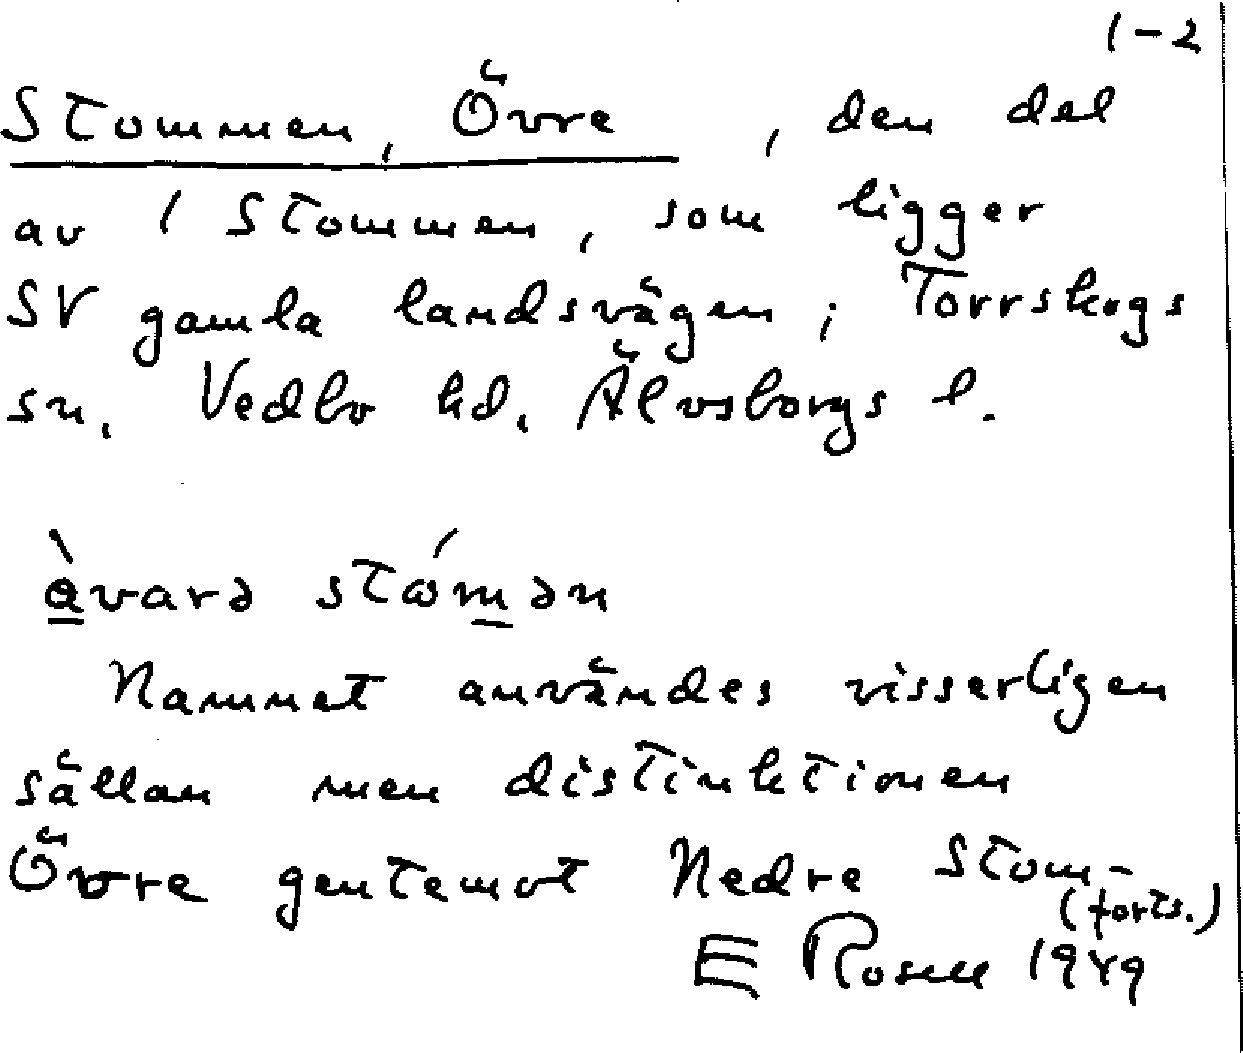 1-2
Stommen, Övre, den del
av 1 Stommen, som ligger
SV gamla landsvägen; Torrskogs
sn. Vedbo hd. Älvsborgs l.
àvarə stómən
Namnet användes visserligen
sällan men distinktionen
Övre gentemot Nedre Stom-
(forts.)
E Rosell 1949